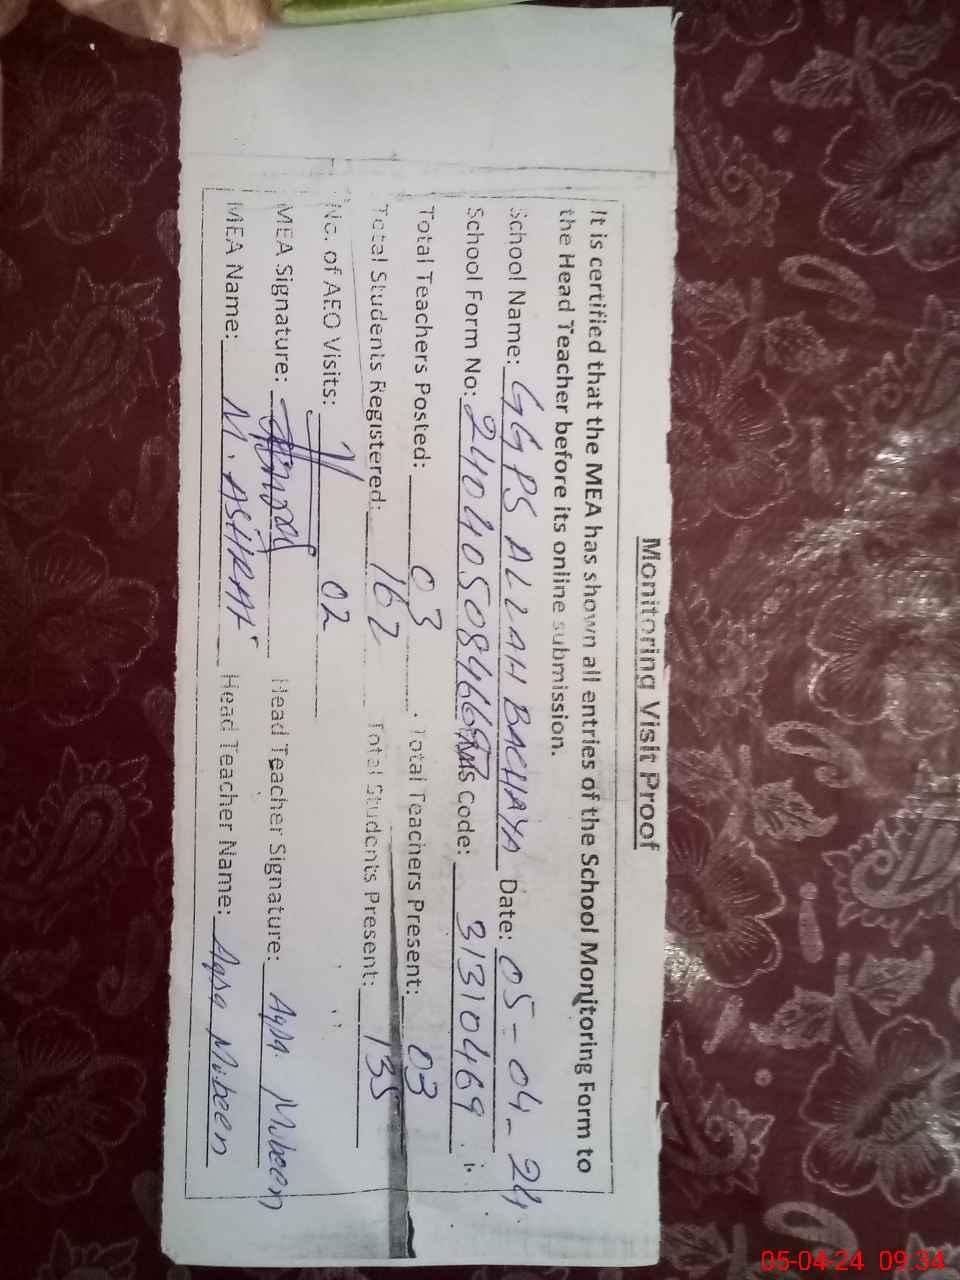 Monitoring Visit Proof
It is certified that the MEA has shown all entries of the School Monitoring Form to
the Head Teacher before its online submission.
School Name: GGPS ALLAH BACHAYA Date: 05-04-24
School Form No: 2404050846695 Code: 31310469
Total Teachers Posted: 03 Total Teachers Present: 03
Total Students Registered: 162 Total Students Present: 135
No. of AEO Visits: 02
MEA Signature: Head Teacher Signature: Aqsa Mubeen
MEA Name: M. ASHRAF Head Teacher Name: Aqsa Mubeen
05-04-24 09:34